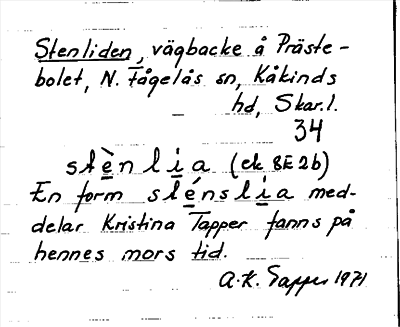 Stenliden, vägbacke å Präste-
bolet, N. Fågelås sn, Kåkinds
hd, Skar.l.
34
stènlia (ek 8E 2b)
En form sténslia med-
delar Kristina Tapper fanns på
hennes mors tid.
A.K. Tapper 1971